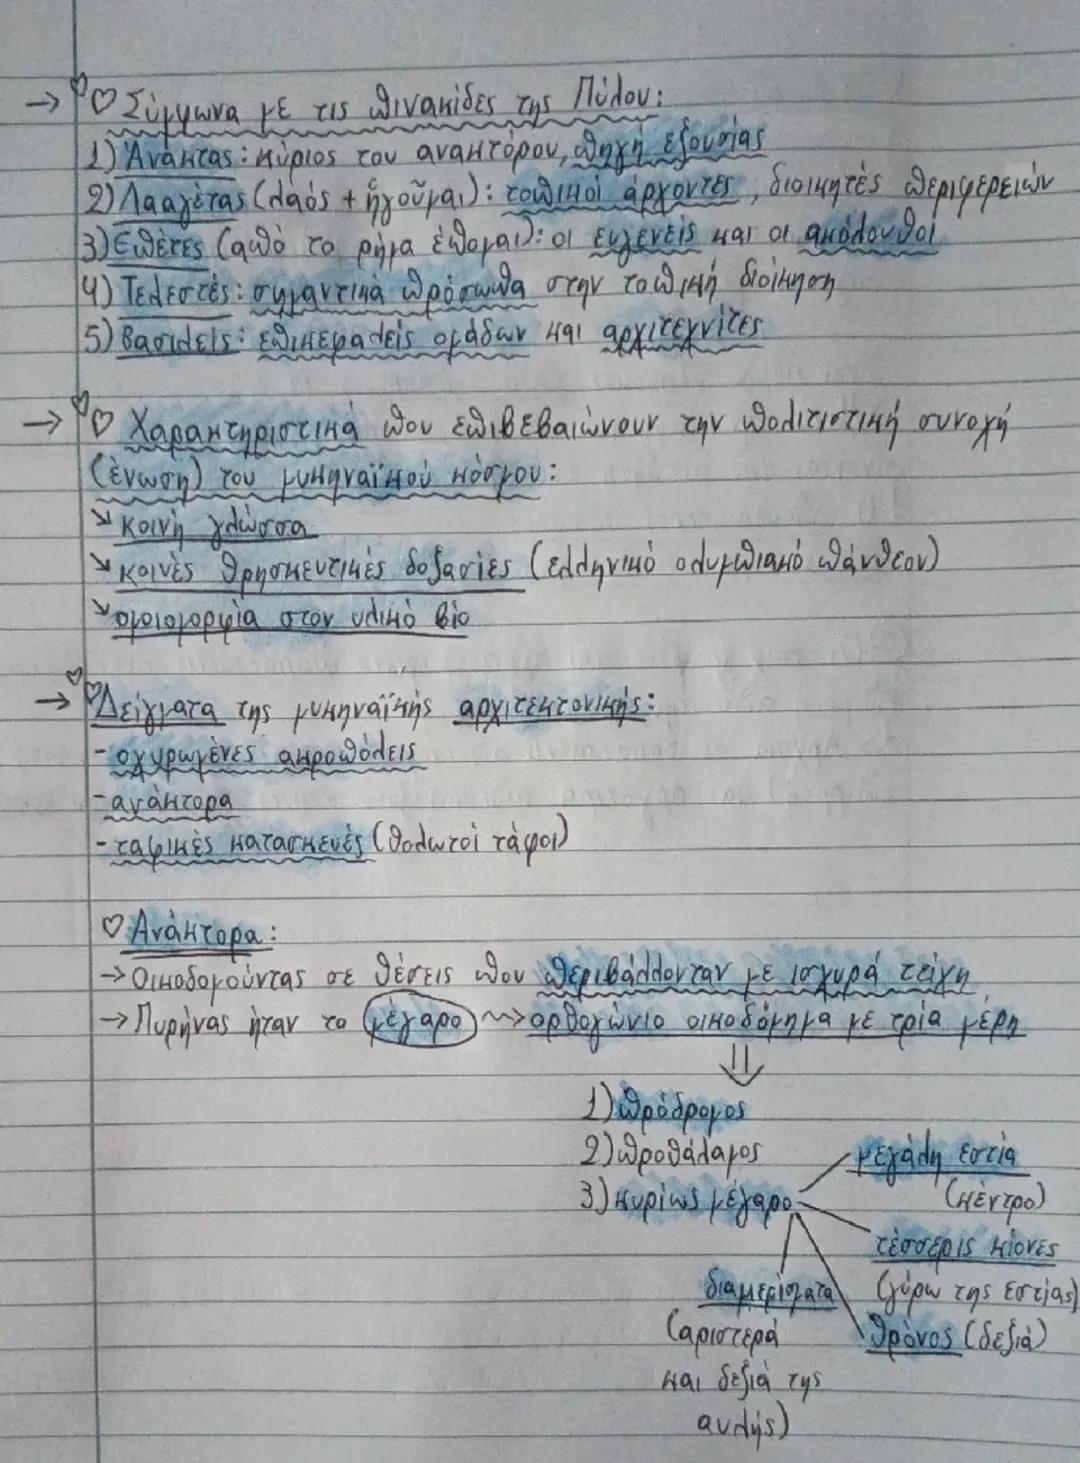 → ♡ Σύμφωνα με τις πινακίδες της Πύλου:
1) Άνακτας: κύριος του ανακτόρου, πηγή εξουσίας
2) Λααγέτας (λαός + ἡγοῦμαι): τοπικοί άρχοντες, διοικητές περιφερειών
3) Επέτες (από το ρήμα έπομαι): οι ευγενείς και οι ακόλουθοι
4) Τελεστές: σημαντικά πρόσωπα στην τοπική διοίκηση
5) Βασιλείς: επικεφαλείς ομάδων και αρχιτεχνίτες
→ ♡ Χαρακτηριστικά που επιβεβαιώνουν την πολιτιστική συνοχή
(ένωση) του μυκηναϊκού κόσμου:
↘ κοινή γλώσσα
↘ κοινές θρησκευτικές δοξασίες (ελληνικό ολυμπιακό πάνθεον)
↘ ομοιομορφία στον υλικό βίο
→ ♡ Δείγματα της μυκηναϊκής αρχιτεκτονικής:
- οχυρωμένες ακροπόλεις
- ανάκτορα
- ταφικές κατασκευές (θολωτοί τάφοι)
♡ Ανάκτορα:
→ Οικοδομούντας σε θέσεις που περιβάλλονταν με ισχυρά τείχη
→ Πυρήνας ήταν το μέγαρο ⇝ ορθογώνιο οικοδόμημα με τρία μέρη
⇓
1) πρόδρομος
2) προθάλαμος
μεγάλη εστία
3) κυρίως μέγαρο
(κέντρο)
τέσσερις κίονες
διαμερίσματα
(γύρω της εστίας)
(αριστερά
θρόνος (δεξιά)
και δεξιά της
αυλής)